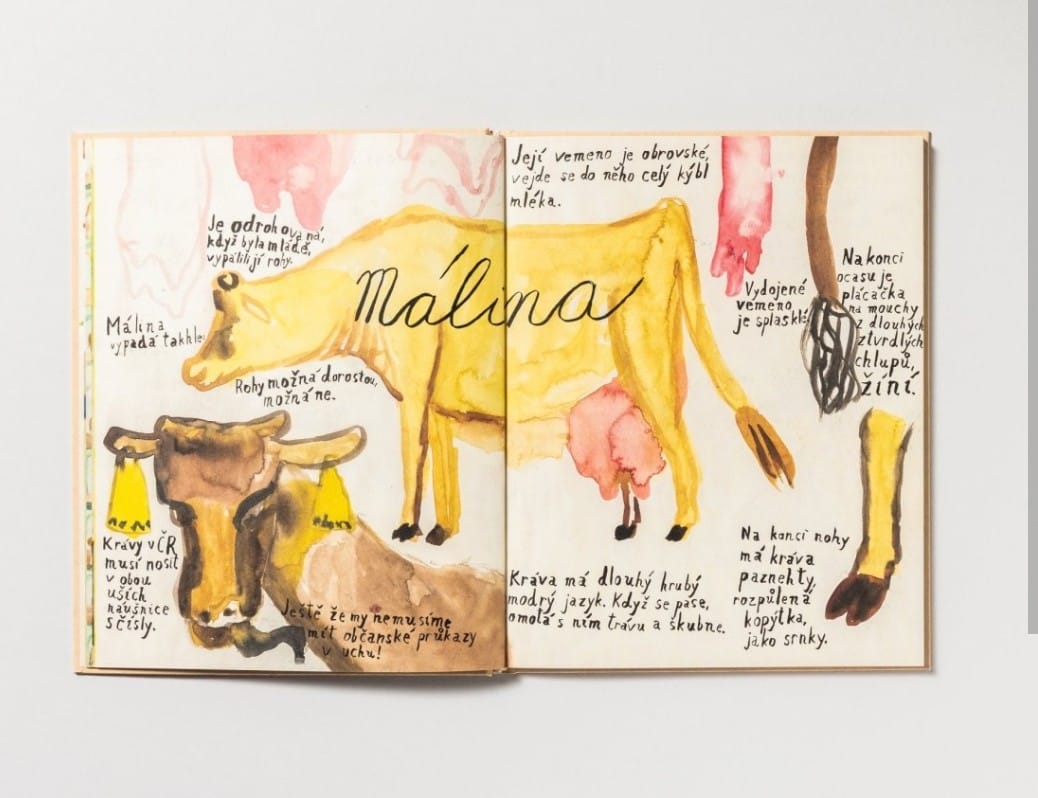 Je odrohovaná,
když byla mládě,
vypálili jí rohy.
Málina
Málina
vypadá takhle.
Rohy možná dorostou,
možná ne.
Krávy v ČR
musí nosit
v obou
uších
náušnice
s čísly.
Ještě že my nemusíme
mít občanské průkazy
v uchu!
Její vemeno je obrovské,
vejde se do něho celý kýbl
mléka.
Vydojené
vemeno
je splasklé.
Na konci
ocasu je
plácačka
na mouchy
z dlouhých
ztvrdlých
chlupů,
žíní.
Kráva má dlouhý hrubý
modrý jazyk. Když se pase,
omotá s ním trávu a škubne.
Na konci nohy
má kráva
paznehty,
rozpůlená
kopýtka,
jako srnky.